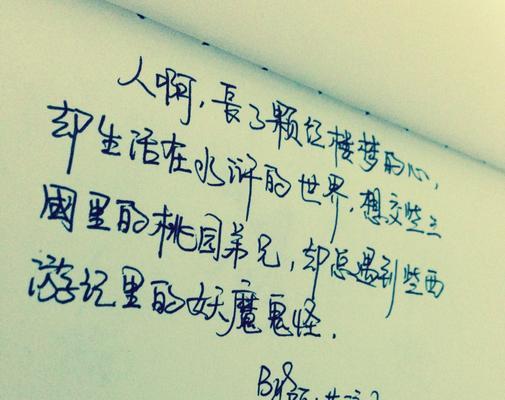 人啊，長了颗红楼梦的心，
却生活在水浒的世界，想交些三
國里的桃园弟兄，却总遇到些西
游记里的妖魔鬼怪.